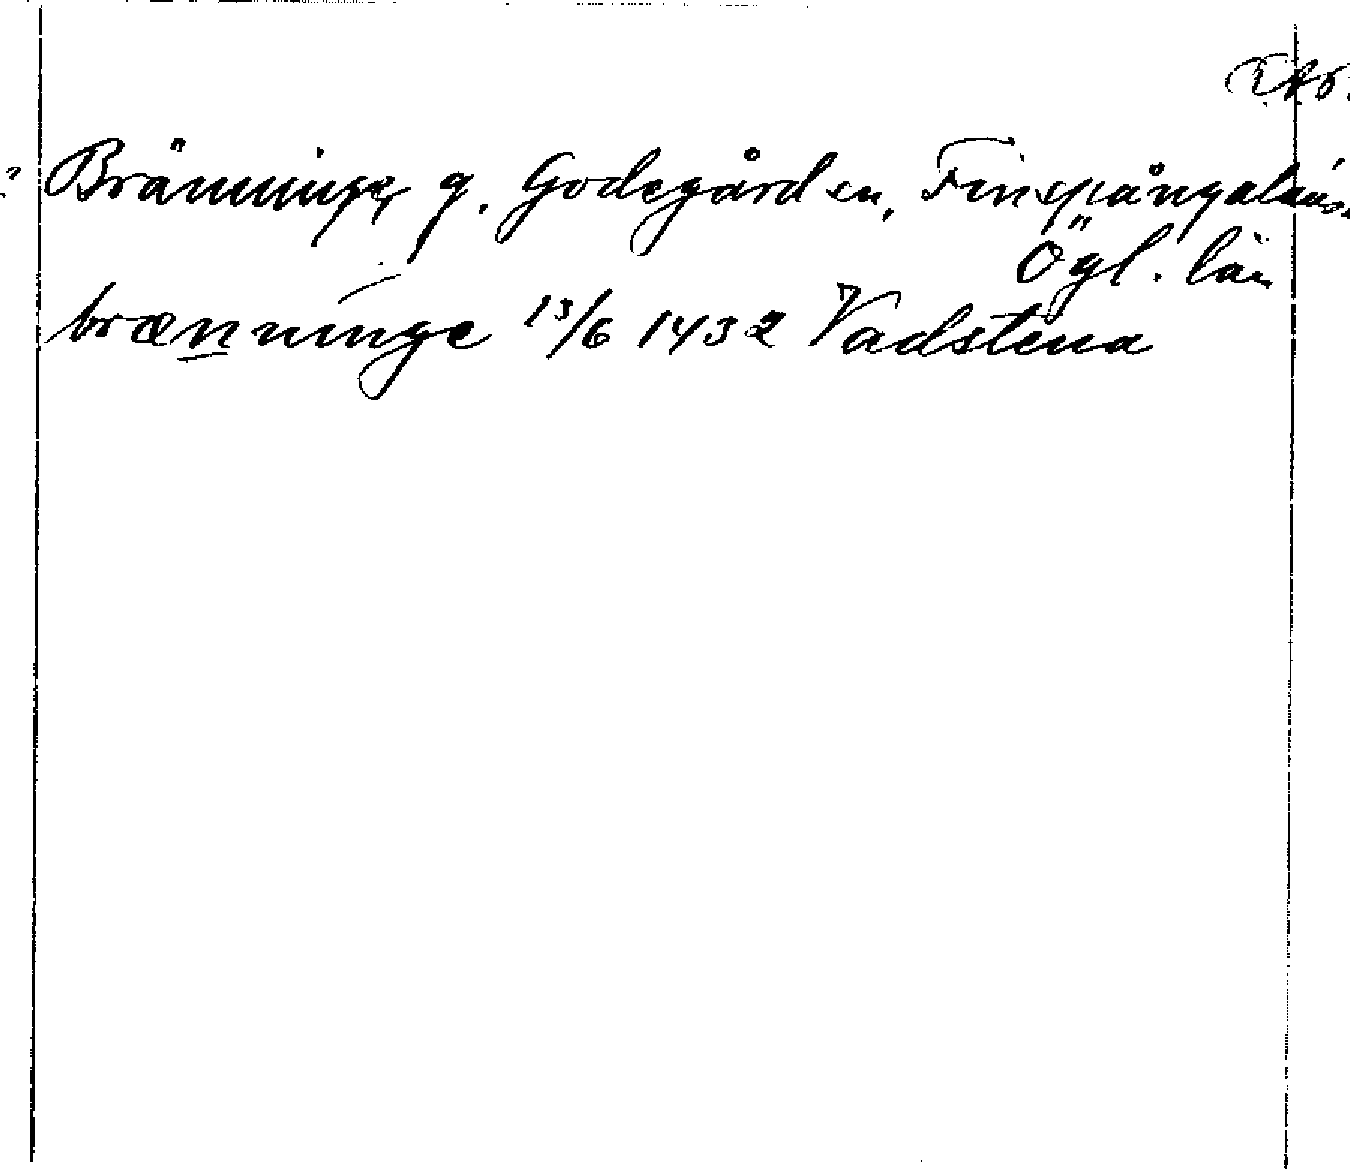 ? Bränninge g. Godegård sn, Finspångaläns
Ögl. län
brænninge 13/6 1432 Vadstena